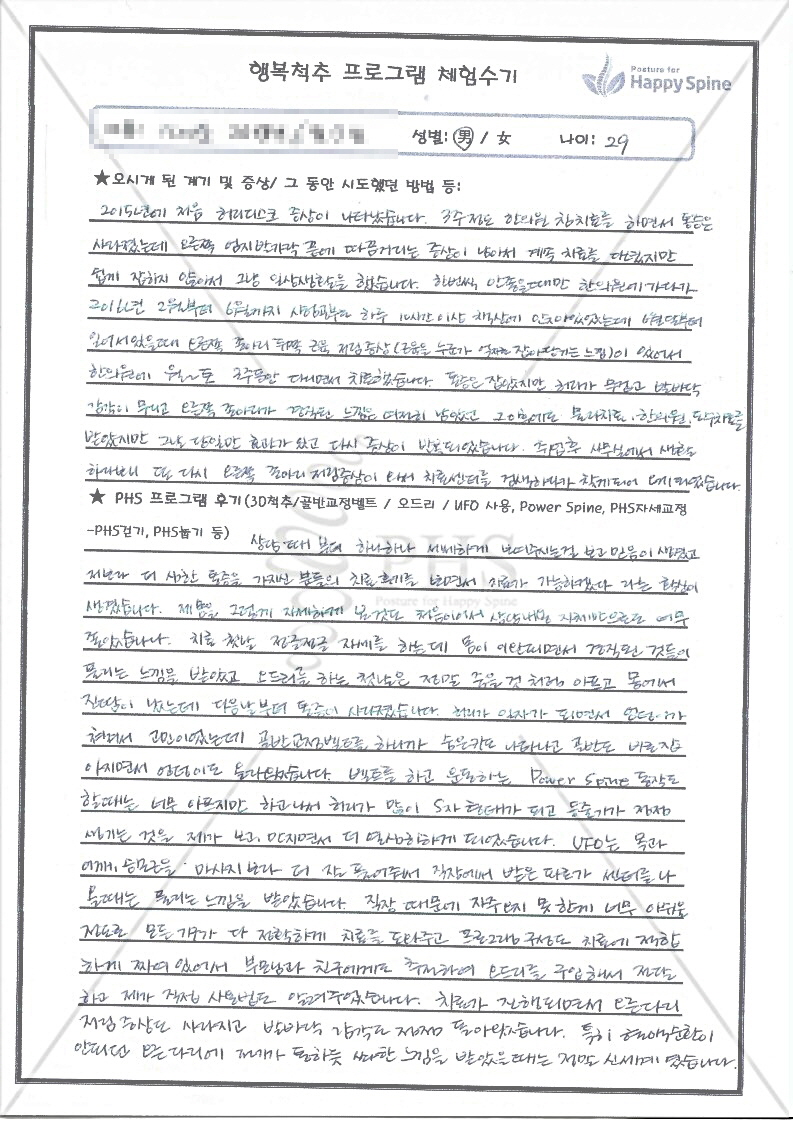 행복척추 프로그램 체험수기
Posture for
Happy Spine
성별: 男 / 女 나이: 29
★오시게 된 계기 및 증상/ 그 동안 시도했던 방법 등:
2015년에 처음 허리디스크 증상이 나타났습니다. 3주정도 한의원 침치료를 하면서 통증은
사라졌는데 오른쪽 엄지발가락 끝에 따끔거리는 증상이 남아서 계속 치료를 다녔지만
쉽게 잡히지 않아서 그냥 일상생활을 했습니다. 한번씩 안좋을때만 한의원에 가다가
2016년 2월부터 6월까지 하루 10시간 이상 책상에 앉아있었는데 6월달부터
일어서있을때 오른쪽 종아리 뒤쪽 근육 저림증상(근육을 누군가 잡아당기는 느낌)이 있어서
한의원에 2주동안 다니면서 치료했습니다. 통증은 잡혔지만 허리가 무겁고 발바닥
감각이 무디고 오른쪽 종아리가 경직된 느낌은 여전히 남았고 그 이후에도 물리치료, 한의원, 도수치료를
받았지만 그날 당일만 효과가 있고 다시 증상이 반복되었습니다. 취업후 사무실에서 생활을
하다보니 또 다시 오른쪽 종아리 저림증상이 와서 치료센터를 검색하다가 찾게되어 오게 되었습니다.
★ PHS 프로그램 후기(3D척추/골반교정벨트 / 오드리 / UFO 사용, Power Spine, PHS자세교정
-PHS걷기, PHS눕기 등) 상담 때부터 하나하나 세세하게 보여주시는걸 보고 믿음이 생겼고
저보다 더 심한 통증을 가지신 분들의 치료 후기를 보면서 치료가 가능하겠다 라는 확신이
생겼습니다. 제 몸을 그렇게 자세하게 본 것도 처음이어서 상담내용 자체만으로도 너무
좋았습니다. 치료 첫날 전중전골 자세를 하는데 몸이 이완되면서 경직된 것들이
풀리는 느낌을 받았고 오드리를 하는 첫날은 정말 죽을 것 처럼 아프고 몸에서
진땀이 났는데 다음날부터 통증이 사라졌습니다. 허리가 일자가 되면서 엉덩이가
쳐져서 고민이었는데 골반교정벨트를 하니까 숨은키도 나타나고 골반도 바로 잡
아지면서 엉덩이도 올라갔습니다. 벨트를 하고 운동하는 Power Spine 동작도
할때는 너무 아프지만 하고나서 허리가 많이 S자 형태가 되고 등줄기가 점점
생기는 것을 제가 보고, 만지면서 더 열심히하게 되었습니다. UFO는 목과
어깨, 승모근을 마사지 보다 더 잘 풀어주어 직장에서 받은 피로가 센터를 나
올때는 풀리는 느낌을 받았습니다. 직장 때문에 자주 오지 못한게 너무 아쉬울
정도로 모든 기구가 다 정확하게 치료를 도와주고 프로그램 구성도 치료에 적합
하게 짜여 있어서 부모님과 친구에게도 추천하여 오드리를 구입해서 전달
하고 제가 직접 사용법도 알려주었습니다. 치료가 진행되면서 오른다리
저림 증상도 사라지고 발바닥 감각도 점점 돌아왔습니다. 특히 혈액순환이
안되던 오른다리에 피가 통하듯 싸한 느낌을 받았을때는 정말 신세계 였습니다.
PHS
Posture for Happy Spine